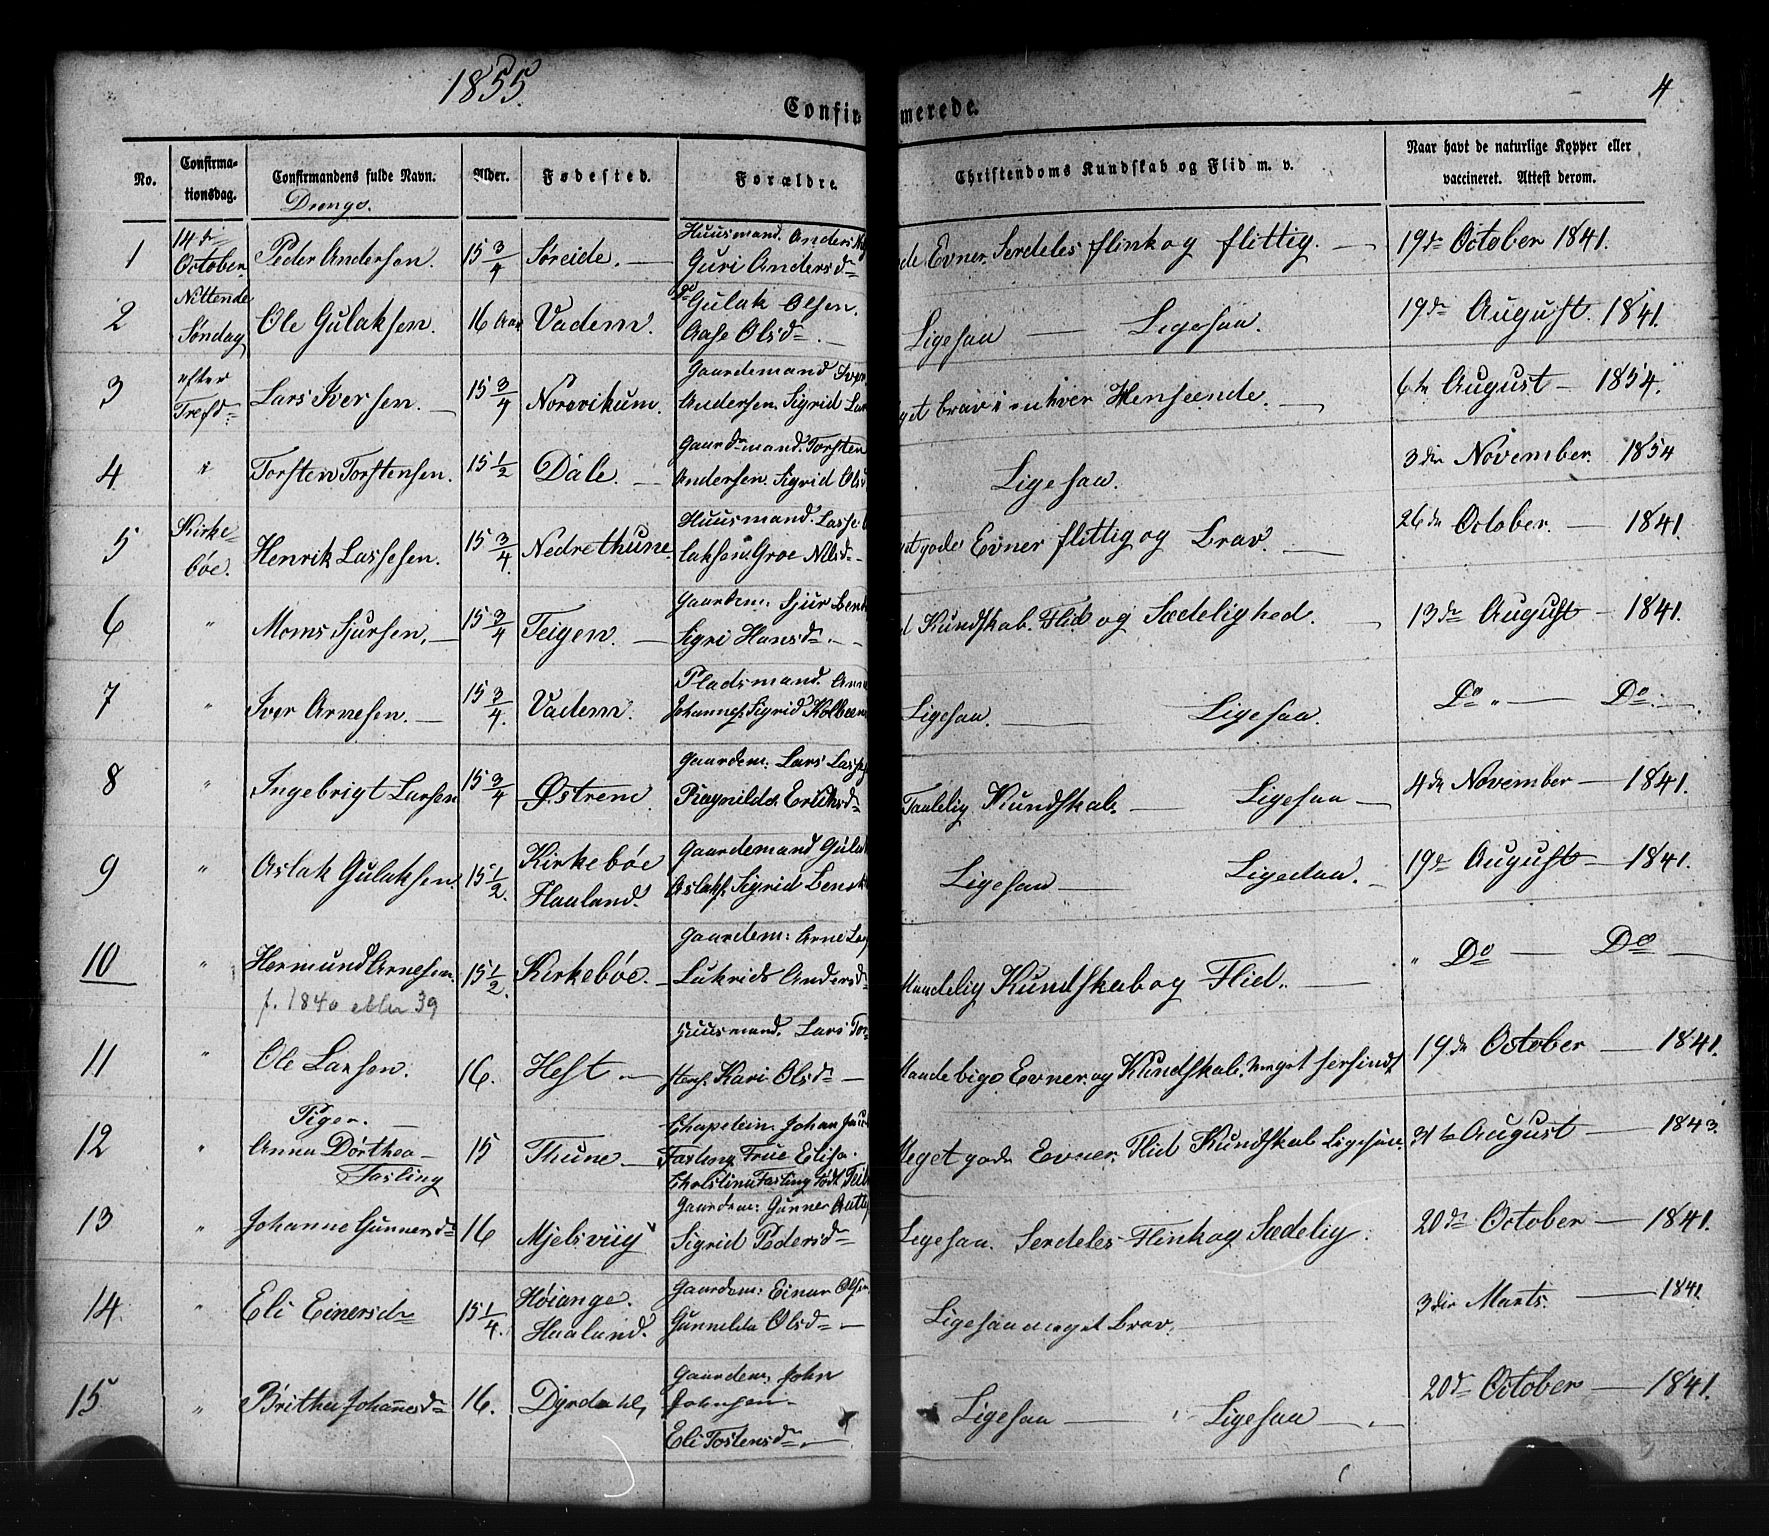 1855.
4
Confir merede.
No.
Confirma-
tionsdag.
Confirmandens fulde Navn.
Drenge.
Alder.
Fødested.
Forældre.
Christendoms Kundskab og Flid m. v.
Naar havt de naturlige Kopper eller
vaccineret. Attest derom.
1 14de October Peder Andersen. 15 3/4 Søreide. Huusmand. Anders
Guri Andersd.
de Evner. Serdeles flink og flittig. 19de October 1841.
2 Nittende Søndag Ole Gulaksen. 16 Aar Vadem. Do Gulak Olsen.
Aase Olsd.
Ligesaa Ligesaa. 19de August. 1841.
3 efter Trefd. Lars Iversen. 15 3/4 Norevikum. Gaardemand Iver
Andersen. Sigrid Lar
get brav i enhver Henseende. 6te August 1854.
4 " Torsten Torstensen. 15 1/2 Dale. Gaardmand. Torsten
Andersen. Sigrid Olsd
Ligesaa. 3die November. 1854
5 Kirke-
bøe. Henrik Lassesen. 15 3/4 Nedrethune. Huusmand. Lasse
laksen. Groe Nilsd.
get gode Evner flittig og brav. 26de October. 1841.
6 " Moms Sjursen. 15 3/4 Teigen. Gaardem: Sjur Bend
Sigri Hansd.
d Kundskab. Flid og Sædelighed. 13de August 1841.
7 " Iver Arnesen. 15 3/4 Vadem. Pladsmand. Arne
Johannes. Sigrid Kolbeen
Ligesaa. Ligesaa. Do " Do
8 " Ingebrigt Larsen 15 3/4 Østrem. Gaardem: Lars Lasse
Ragnilda Eriksd.
Taalelig Kundskab. Ligesaa 4de November 1841.
9 " Aslak Gulaksen. 15 1/2. Kirkebøe
Haaland. Gaardemand Gula
Aslaks. Sigrid Bend
Ligesaa Ligesaa. 19de August 1841.
10 " Hermund Arnesen. 15 1/2. Kirkebøe. Gaardem: Arne Las
Lukrids Andersd
f. 1840 eller 39
Maadelig Kundskab og Flid. " Do Do
11 " Ole Larsen. 16. Hest Huusmand. Lars Tor-
stens. Kari Olsd.
Kundskab. meget 19de October 1841.
Piger.
12 " Anna Dorthea
Fasling 15 Thune Chapelein. Johan
Fasling Frue Elisa-
Christina Fasling født
Meget gode Evner. Flid Kundskab Ligesaa. 31te August 1843.
13 " Johanne Gunnersd. 16 Mjelsviig Gaardem: Gunner
Sigrid Pedersd.
Ligesaa. Serdeles Flink og Sædelig. 20de October 1841.
14 " Eli Einersd. 15 1/4. Høiange.
Haaland. Gaardem: Einar Olsen
Gunnelda Olsd.
Ligesaa meget brav. 3die Marts. 1841
15 " Britha Johannesd. 16. Dyrdahl, Gaardem: John
Johnsen.
Eli Tostensd.
Ligesaa Ligesaa 20de October 1841.